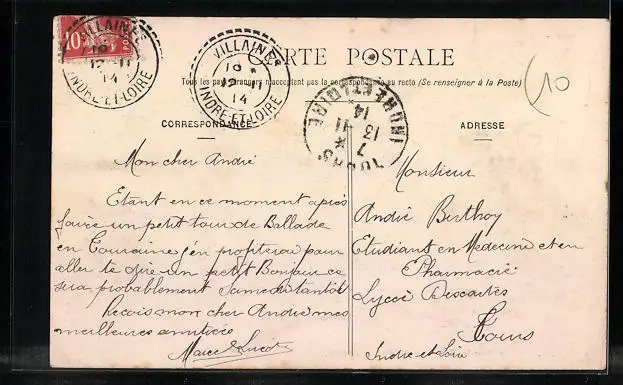 10
VILLAINES
10
12-11
14
INDRE-ET-LOIRE
VILLAINES
10
12-11
14
INDRE-ET-LOIRE
CARTE POSTALE
Tous les pays étrangers n'acceptent pas la correspondance au recto (Se renseigner à la Poste)
10
TOURS
7
13-11
14
INDRE-ET-LOIRE
CORRESPONDANCE
ADRESSE
Mon cher André
Etant en ce moment après
faire un petit tour de Ballade
en Touraine j'en profiterai pour
aller te dire un petit Bonjour ce
sera probablement Samedi tantôt
Reçois mon cher André mes
meilleures amitiés
Marcel
Monsieur
André Berthoy
Etudiant en Médecine et en
Pharmacie
Lycée Descartes
Tours
Indre et Loire